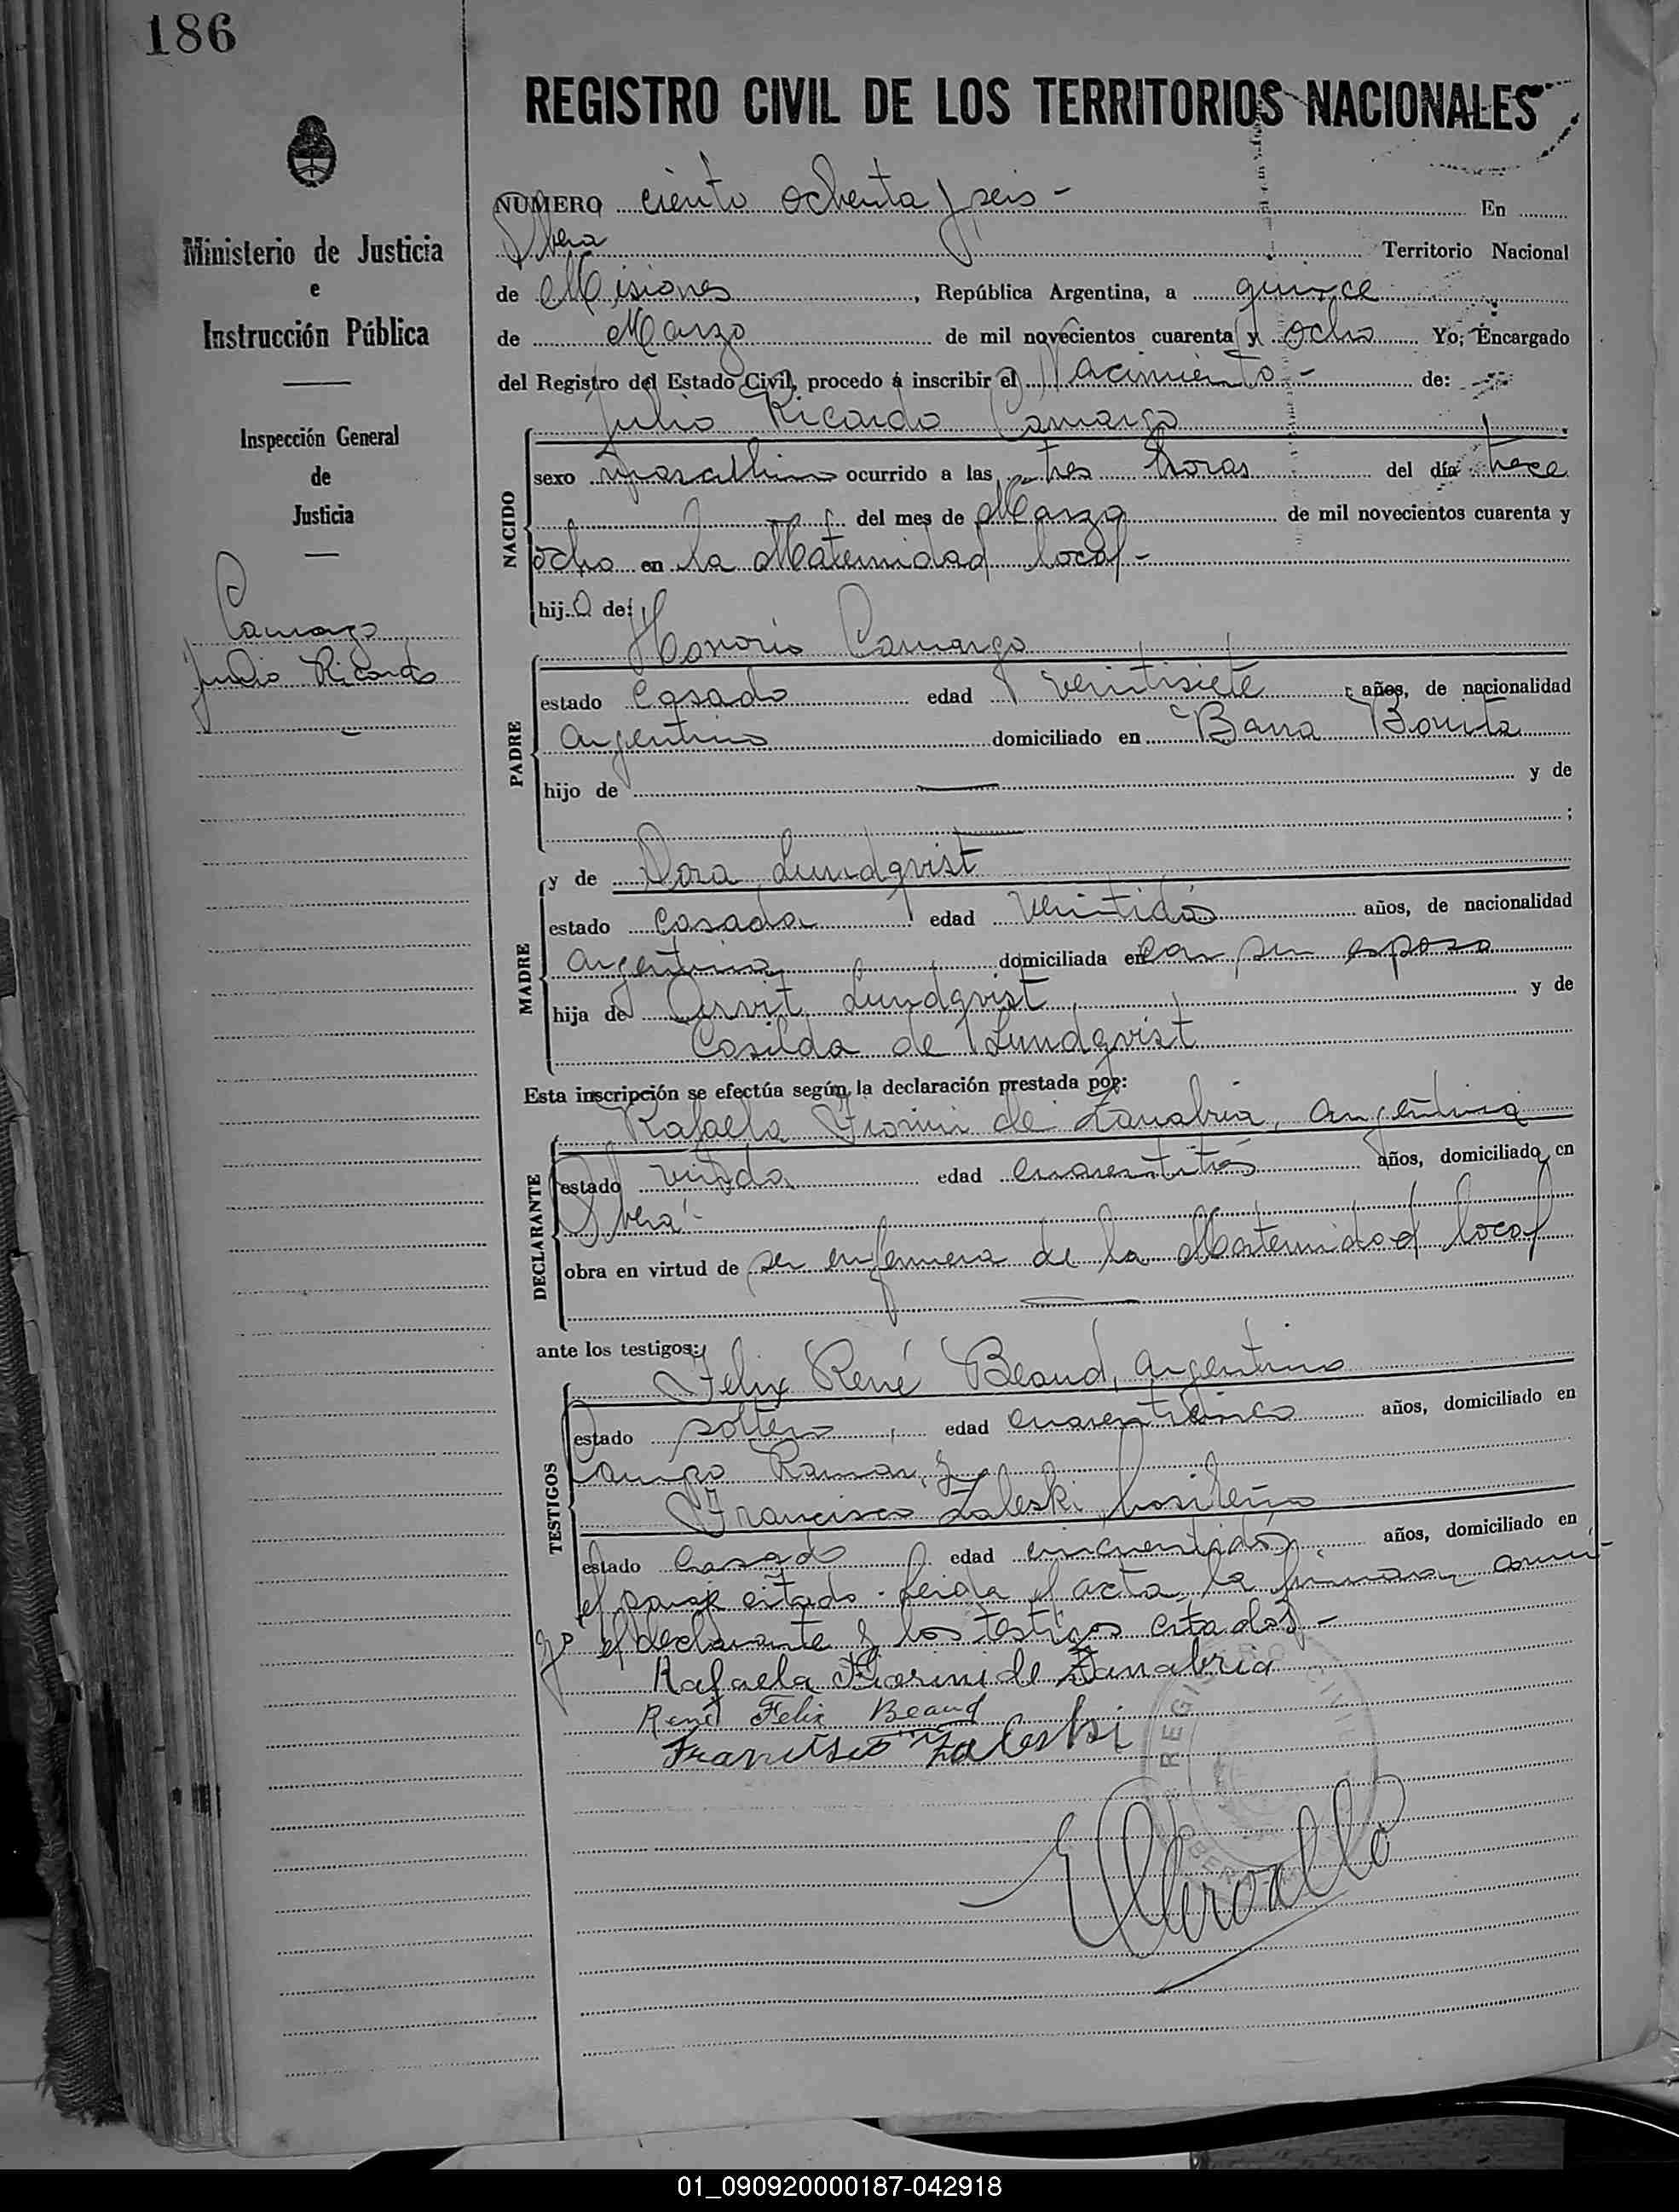 186
REGISTRO CIVIL DE LOS TERRITORIOS NACIONALES
Ministerio de Justicia
e
Instrucción Pública
Inspección General
de
Justicia
Camargo
Julio Ricardo
NUMERO ciento ochenta y seis - En
Oberá Territorio Nacional
de Misiones, República Argentina, a quince
de Marzo de mil novecientos cuarenta y ocho Yo, Encargado
del Registro del Estado Civil, procedo á inscribir el Nacimiento - de:
Julio Ricardo Camargo
NACIDO
sexo masculino ocurrido a las tres horas del día trece
del mes de Marzo de mil novecientos cuarenta y
ocho en la Maternidad local -
hijo de:
Honorio Camargo
PADRE
estado casado edad veintisiete años, de nacionalidad
argentino domiciliado en Barra Bonita
hijo de y de
;
MADRE
y de Dora Lundqvist
estado casada edad veintidós años, de nacionalidad
argentina domiciliada en con su esposo
hija de Arvit Lundqvist y de
Casilda de Lundqvist
Esta inscripción se efectúa según la declaración prestada por:
Rafaela Fiorini de Zanabria, argentina
DECLARANTE
estado viuda edad cuarentitrés años, domiciliado en
Oberá -
obra en virtud de ser enfermera de la Maternidad local
ante los testigos:
Felix René Beaud, argentino
TESTIGOS
estado soltero, edad cuarenticinco años, domiciliado en
Campo Ramon, y
Francisco Zaleski, brasileño
estado casado edad cincuentidós años, domiciliado en
el paraje citado. Leida el acta, la firman con-
migo el declarante y los testigos citados -
Rafaela Fiorini de Zanabria
René Felix Beaud
Francisco Zaleski
REGISTRO CIVIL
OBERA
01_090920000187-042918